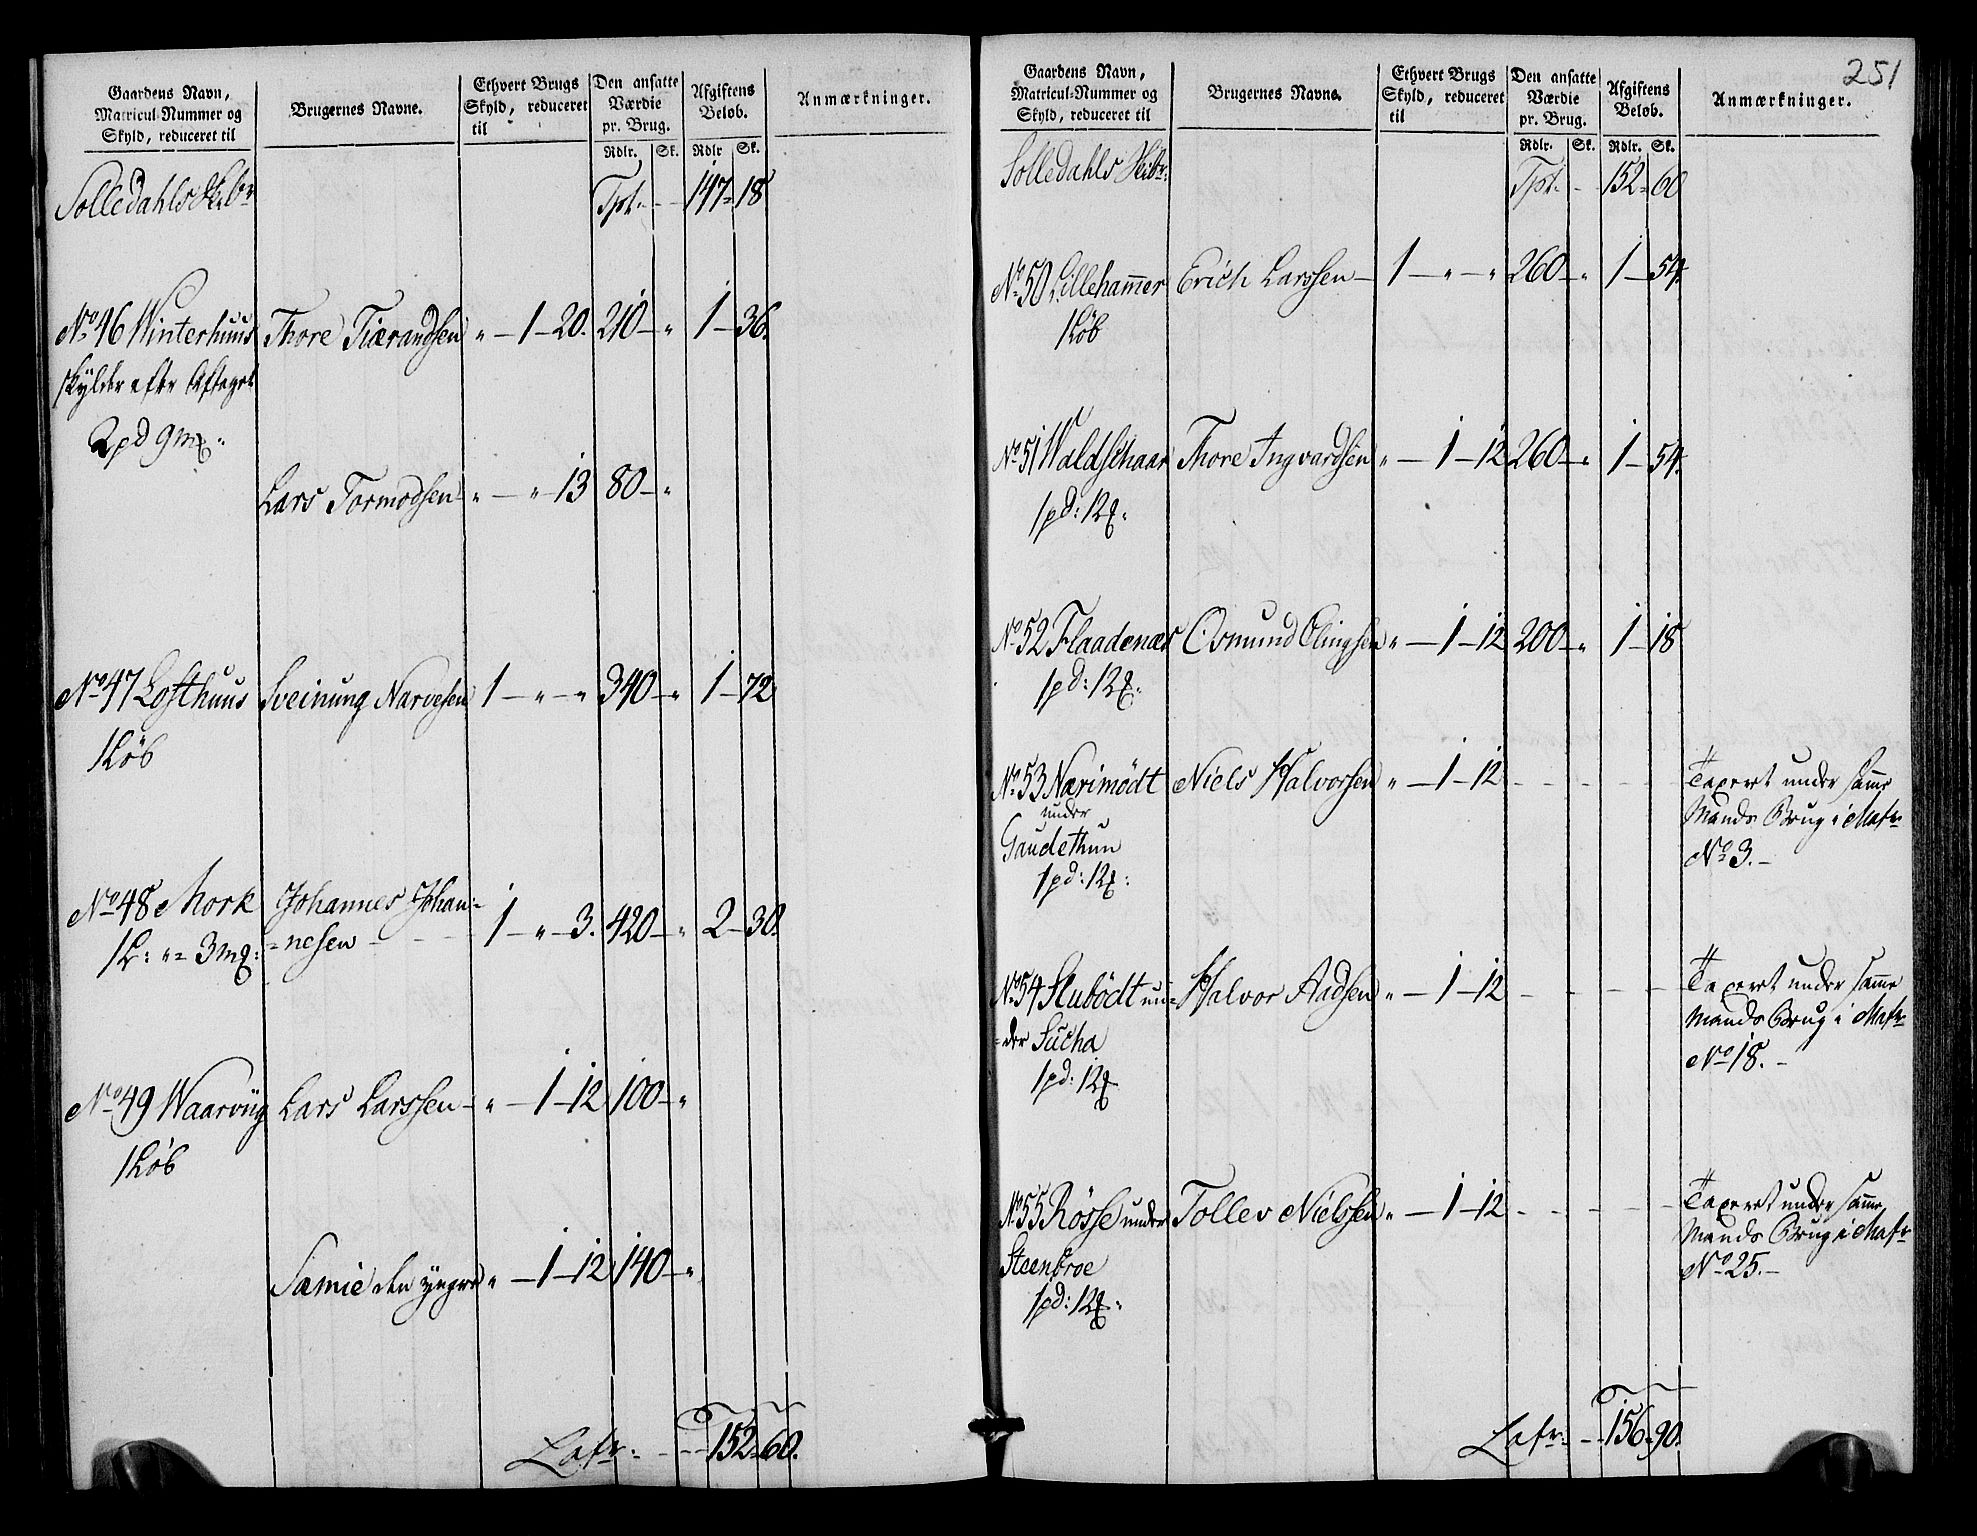 Gaardens Navn, Matricul-Nummer og Skyld, reduceret til
Brugernes Navne.
Ethvert Brugs Skyld, reduceret til
Den ansatte Værdie pr. Brug.
Afgiftens Beløb.
Anmærkninger.
Rdlr. Sk. Rdlr Sk.
Solledahls Skibr Tpt. - - 147 = 18
No 46 Winterhuus Thore Tiærandsen " — 1 — 20. 210 — " 1 — 36.
skylder efter Aftaget
2 pd 9 mk.
Lars Tormodsen " — " — 13 80 — "
No 47 Lofthuus Sveinung Narvesen 1 — " — " 340 — " 1 — 72.
1 Løb
No 48 Mork Johannes Johan=
1 L: " = 3 mk: =nesen 1 — " — 3. 420 — " 2 — 30.
No 49 Waarviig Lars Larssen — " — 1 — 12 100 — "
1 Løb
Samme den yngre " — 1 — 12 140 — "
Lafr: - - - 152 = 60.
251
Gaardens Navn, Matricul-Nummer og Skyld, reduceret til
Brugernes Navne.
Ethvert Brugs Skyld, reduceret til
Den ansatte Værdie pr. Brug.
Afgiftens Beløb.
Anmærkninger.
Rdlr. Sk. Rdlr. Sk.
Solledahls Skibr: Tpt. - 152 = 60
No 50 Lillehammer Erich Larssen — 1 — " — " 260 — " 1 — 54.
1 Løb
No 51 Waldschaar Thore Ingvardsen " — 1 — 12 260 — " 1 — 54.
1 pd: 12 mk.
No 52 Flaadenæs Osmund Elingsen " — 1 — 12 200 — " 1 — 18
1 pd: 12 mk.
No 53 Nærimødt Niels Halvorsen " — 1 — 12 - - - - Taxeret under samme
under Mands Brug i Matr
Gaudethun No 3. —
1 pd: 12 mk:
No 54 Slubødt un= Halvor Aadsen " — 1 — 12 - - - - Taxeret under samme
=der Sucha Mands Brug i Matr
1 pd: 12 mk No 18. —
No 55 Røsse under Tollev Nielssen " — 1 — 12 - - - - Taxeret under samme
Steenbroe Mands Brug i Matr
1 pd: 12 mk. No 25. —
Lafr: - - 156 = 90.